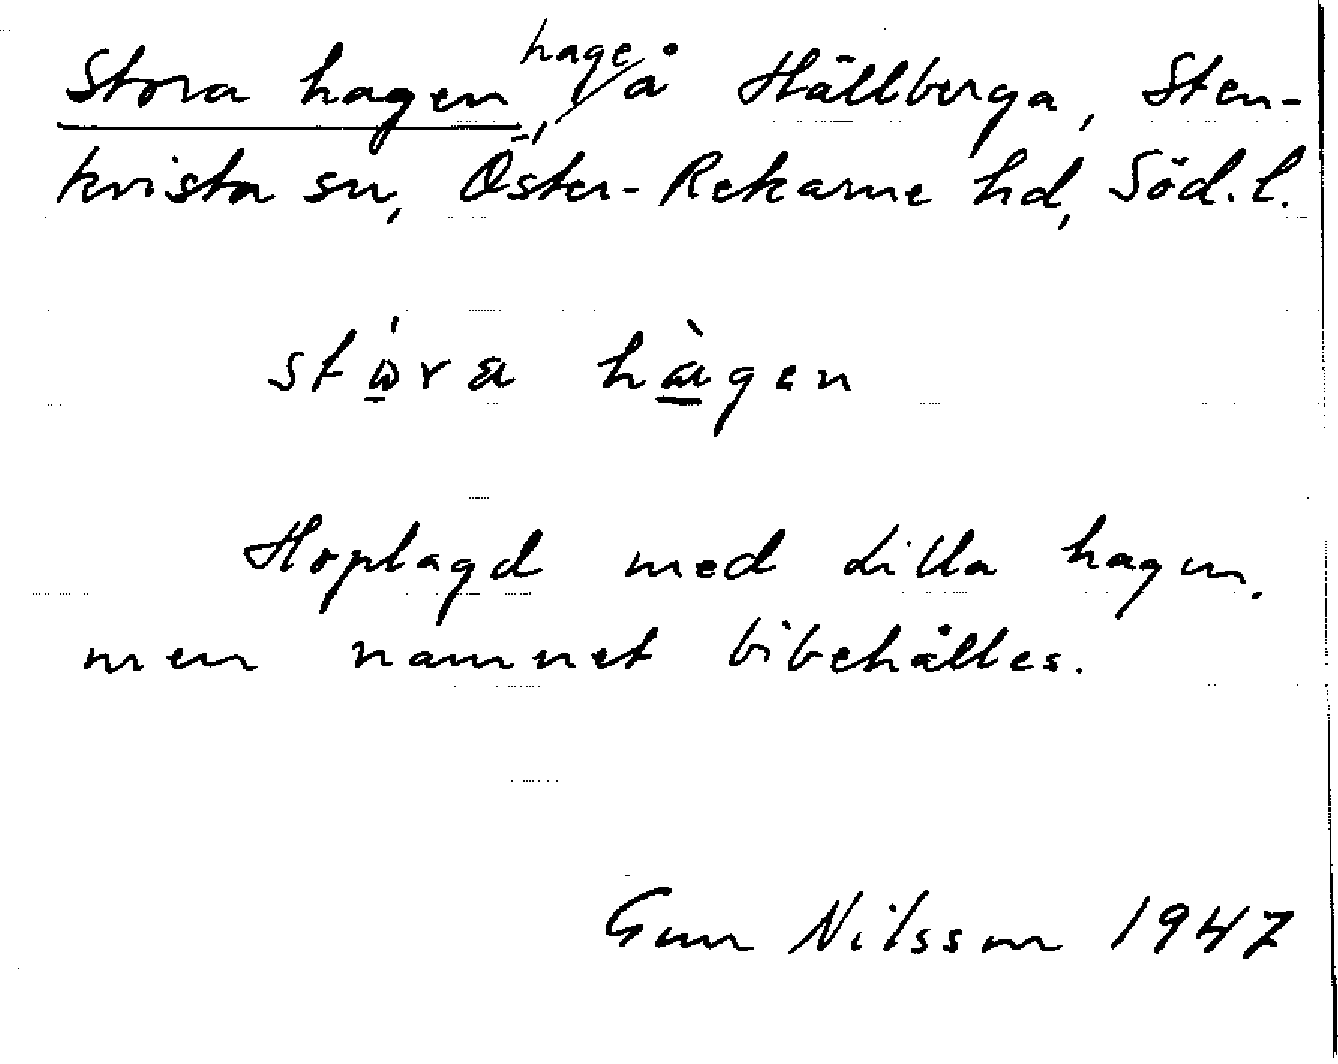 Stora hagen, hage å Hällberga, Sten-
kvista sn, Öster-Rekarne hd, Söd.l.
stó̠ra hà̠gen
Hoplagd med Lilla hagen.
men namnet bibehålles.
Gun Nilsson 1947